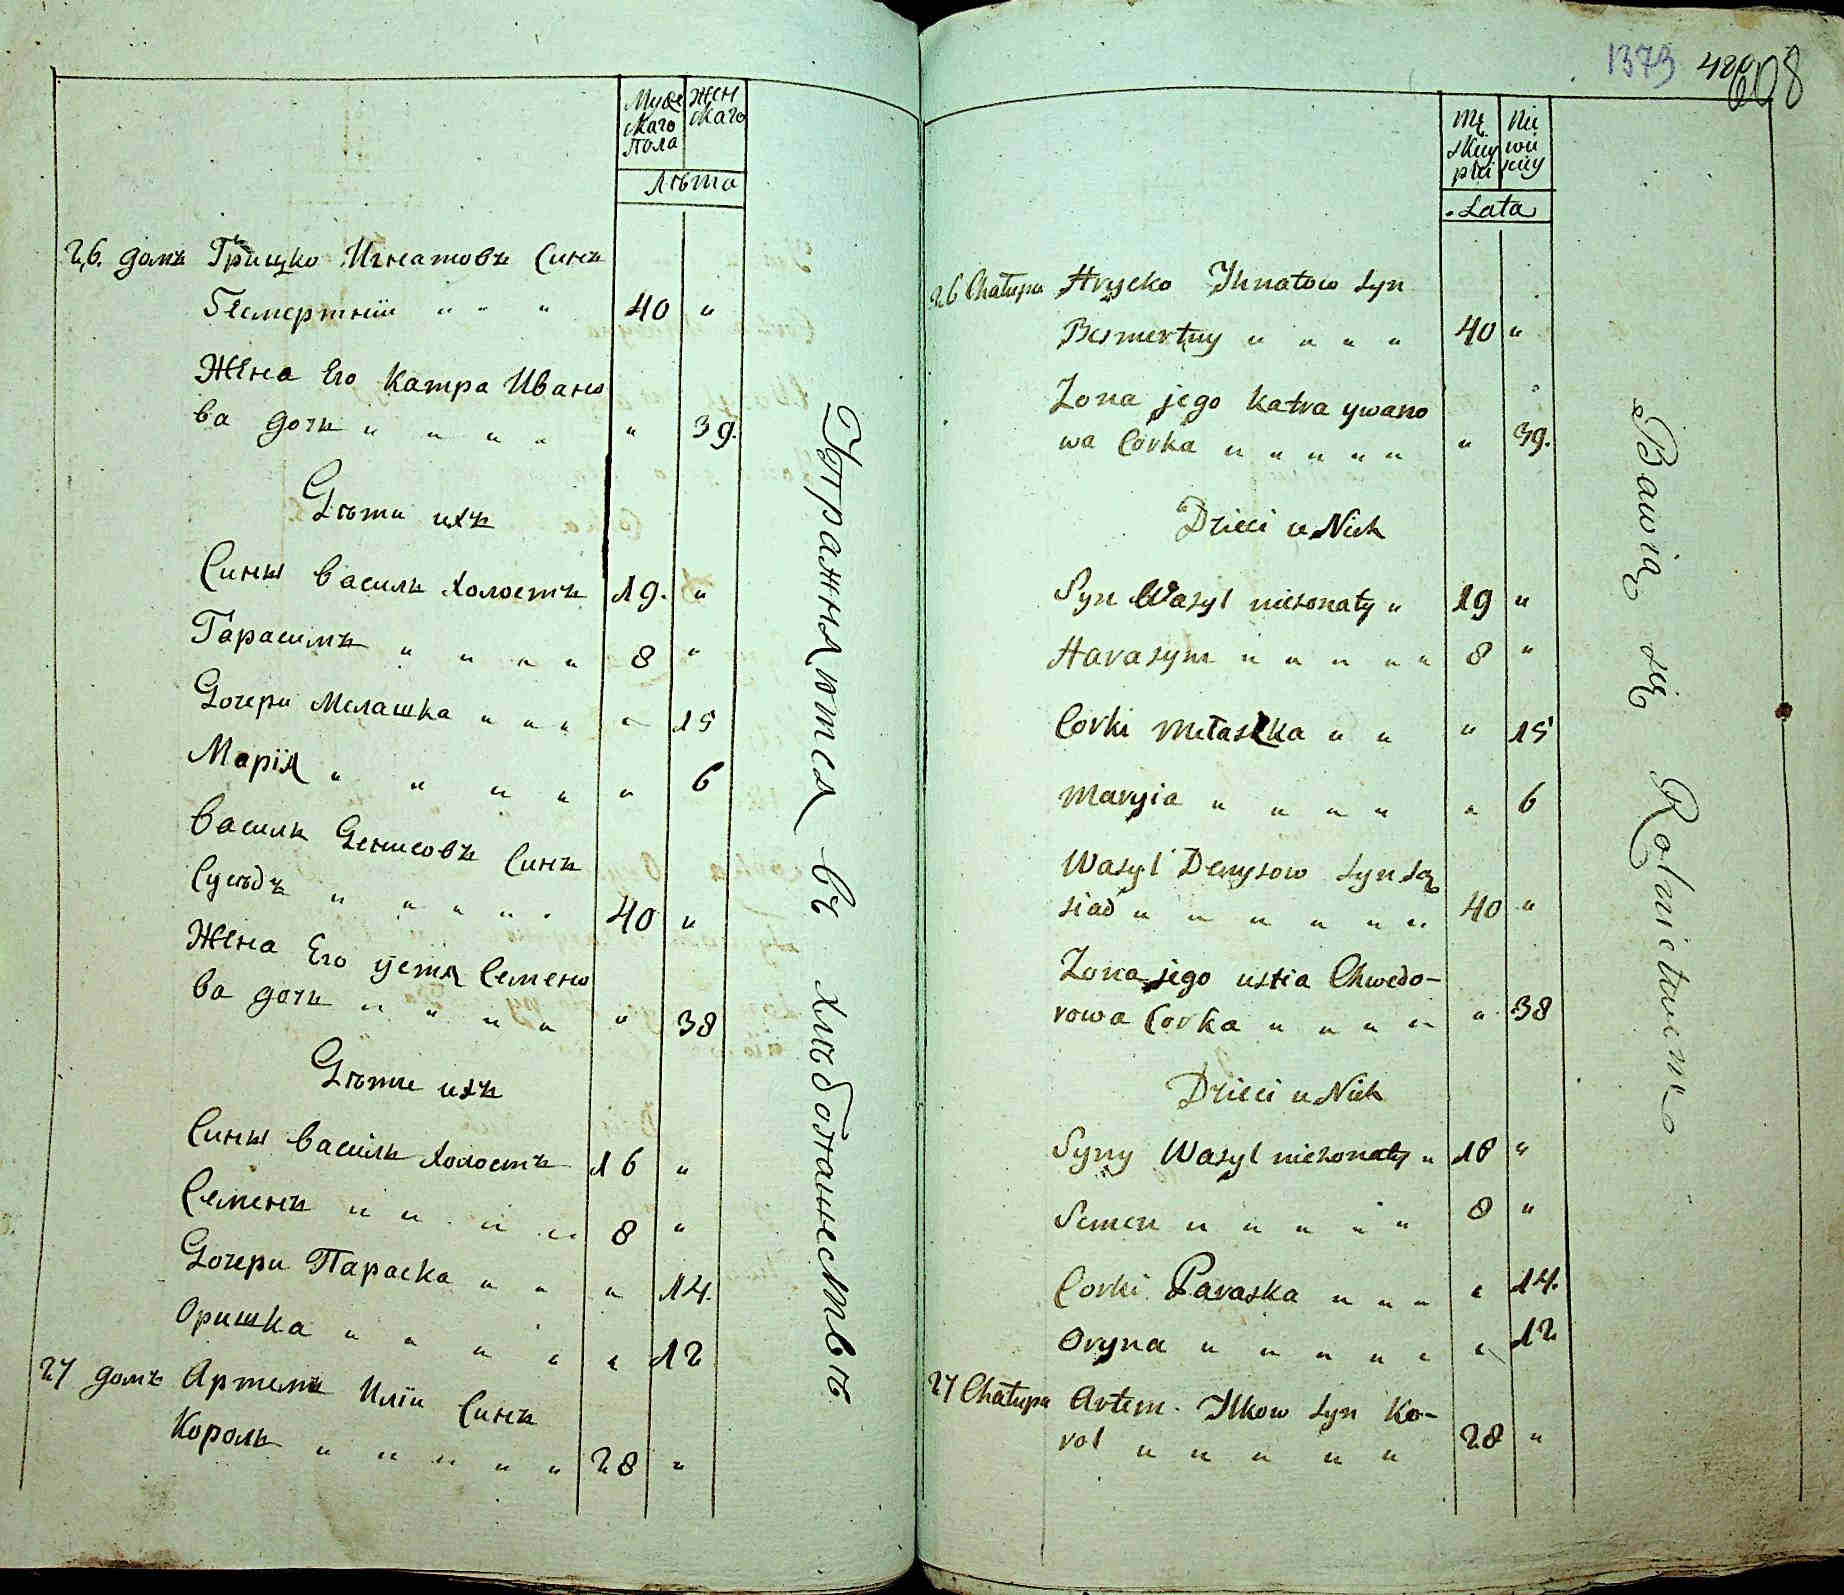 Муже
скаго
пола
Жен
скаго
Лѣта
26. домъ Грицко Игнатовъ Синъ
Безмертній " " " 40 "
Жена Его Катра Ивано
ва дочь " " " " " 39.
Дѣти ихъ
Сины Василь Холостъ 19. "
Гарасимъ " " " " 8 "
Дочери Мелашка " " " " 15
Марія " " " " " 6
Василь Денисовъ Синъ
Сусѣдъ " " " " " 40 "
Жена Его Устя Семено
ва дочь " " " " " 38
Дѣти ихъ
Сины Василь Холостъ 16 "
Семенъ " " " " 8 "
Дочери Параска " " " 14.
Оришка " " " " " 12
27 домъ Артемъ Иліи Синъ
Король " " " " " 28 "
Упражняются въ хлѣбопашествѣ
1373 608
Mę
skiey
płci
Nie
wie
sciey
Lata
26 Chałupa Hrycko Ihnatow Syn
Besmertny " " " " 40 "
Zona jego Katra ywano
wa Córka " " " " " " 39.
Dzieci u Nich
Syn Wasyl niezonaty " 19 "
Harasym " " " " " 8 "
Corki Mełaszka " " " 15
Maryia " " " " " 6
Wasyl Denysow Syn Są
siad " " " " " " " 40 "
Zona jego ustia Chwedo-
rowa Corka " " " " " 38
Dzieci u Nich
Syny Wasyl niezonaty " 18 "
Semen " " " " " 8 "
Corki Paraska " " " " 14.
Oryna " " " " " " 12
27 Chałupa Artem Ilkow Syn Ko-
rol " " " " " 28 "
Bawią się Rolnictwem